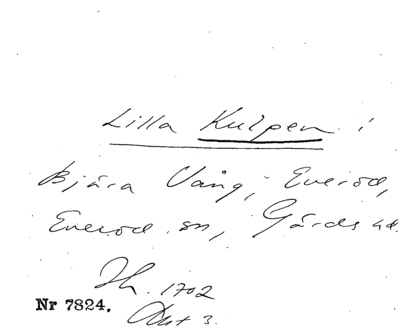 Lilla Kulpen i
Bjära Vång, Everöd,
Everöd sn, Gärds hd.
Jh. 1702
Nr 7824. Akt 3.